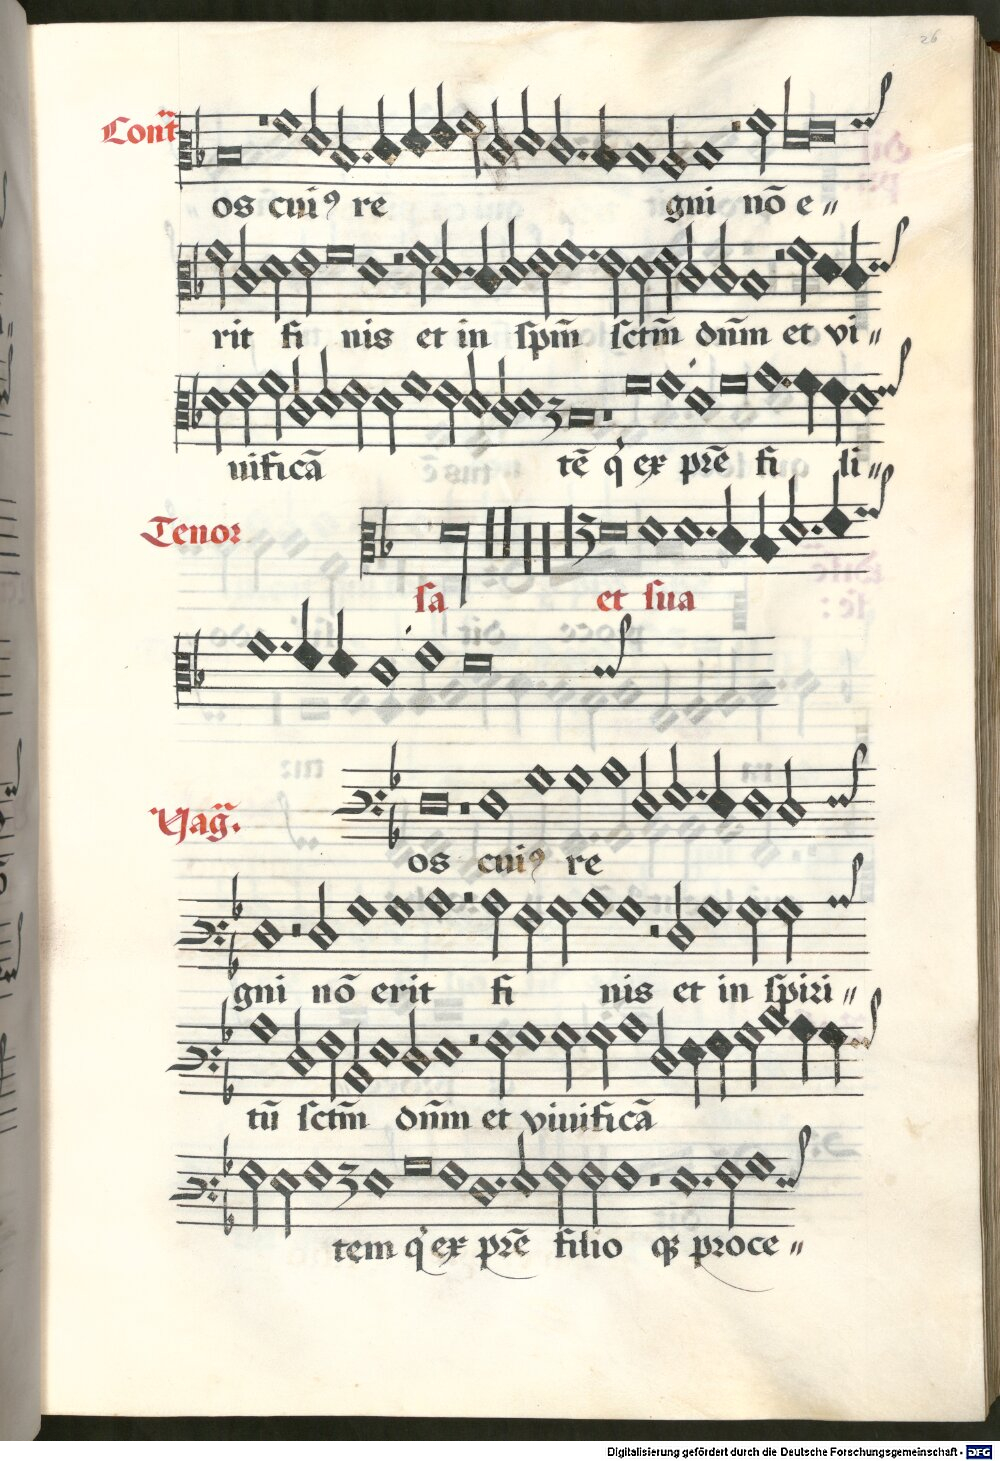 26
Cont̃
os cui⁹ re gni nō e〃
rit fi nis et in sp̄m sctm̄ dn̄m et vi〃
uificā tē q' ex pr̄e fi li〃
Tenor
sa et sua
Vag̃.
os cui⁹ re
gni nō erit fi nis et in spiri〃
tū sctm̄ dn̄m et viuificā
tem q' ex pr̄e filio qꝫ proce〃
Digitalisierung gefördert durch die Deutsche Forschungsgemeinschaft - DFG